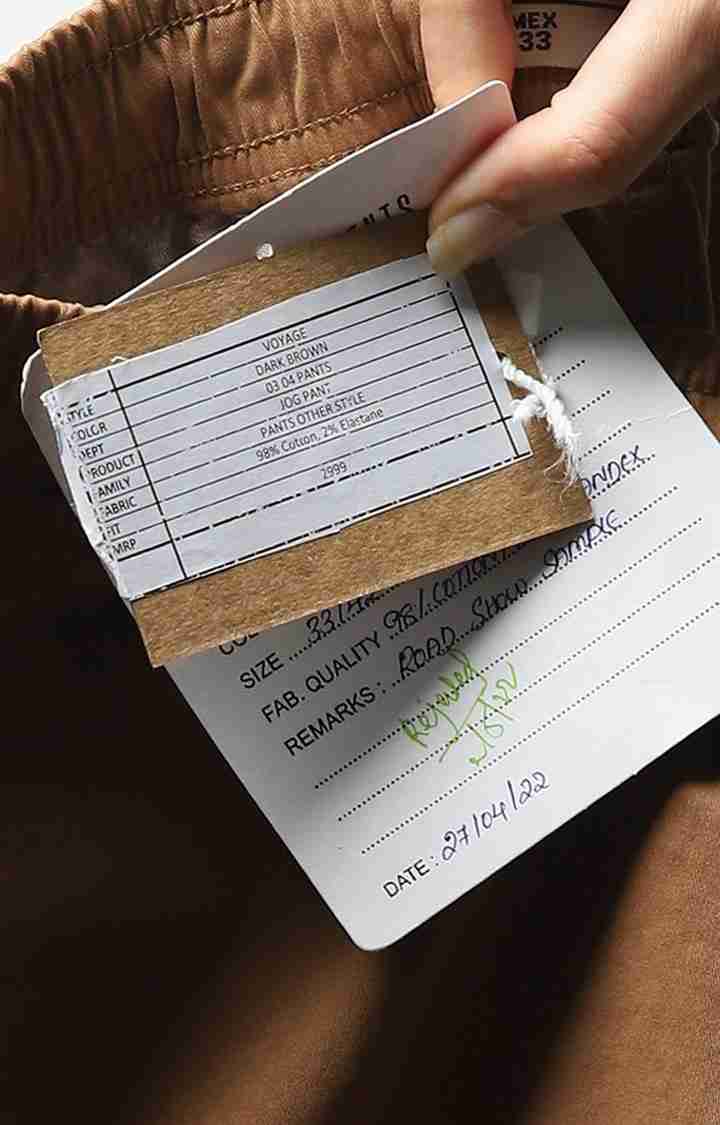 MEX
33
NTS
STYLE VOYAGE
COLOR DARK BROWN
DEPT 03 04 PANTS
PRODUCT JOG PANT
FAMILY PANTS OTHER STYLE
FABRIC 98% Cotton, 2% Elastane
FIT
MRP 2999
SIZE
FAB. QUALITY 98% COTTON
REMARKS: ROAD SHOW SAMPLE
Rejected
DATE: 27/04/22